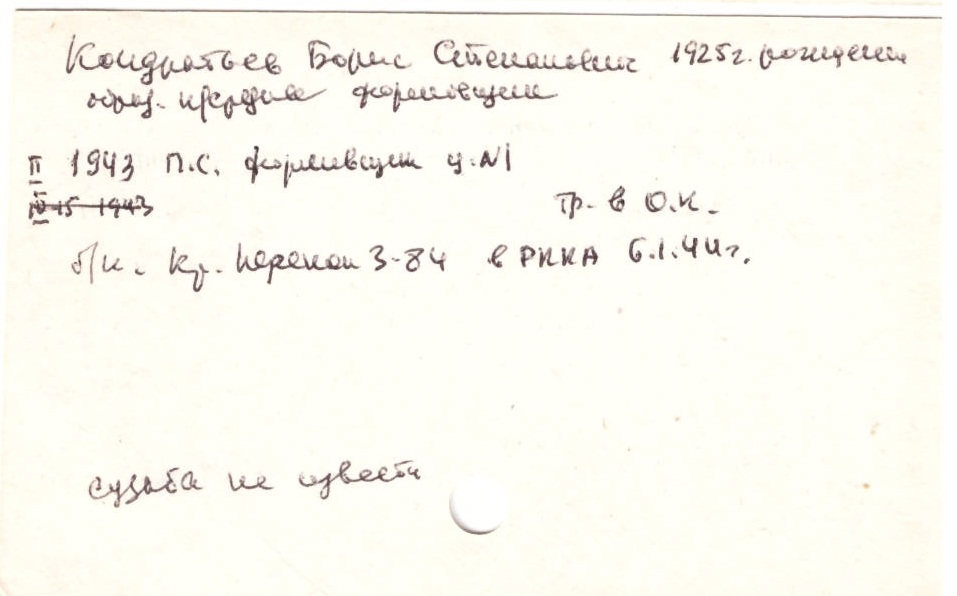 Кондратьев Борис Степанович 1925г. рождения
образ. н/средне формовщик
II 1943 П.С. формовщик ц. N1
IV 15 1943
тр. в О.К.
б/н. Кр. Перекоп 3-84 в РККА 6.1.44г.
судьба не извести